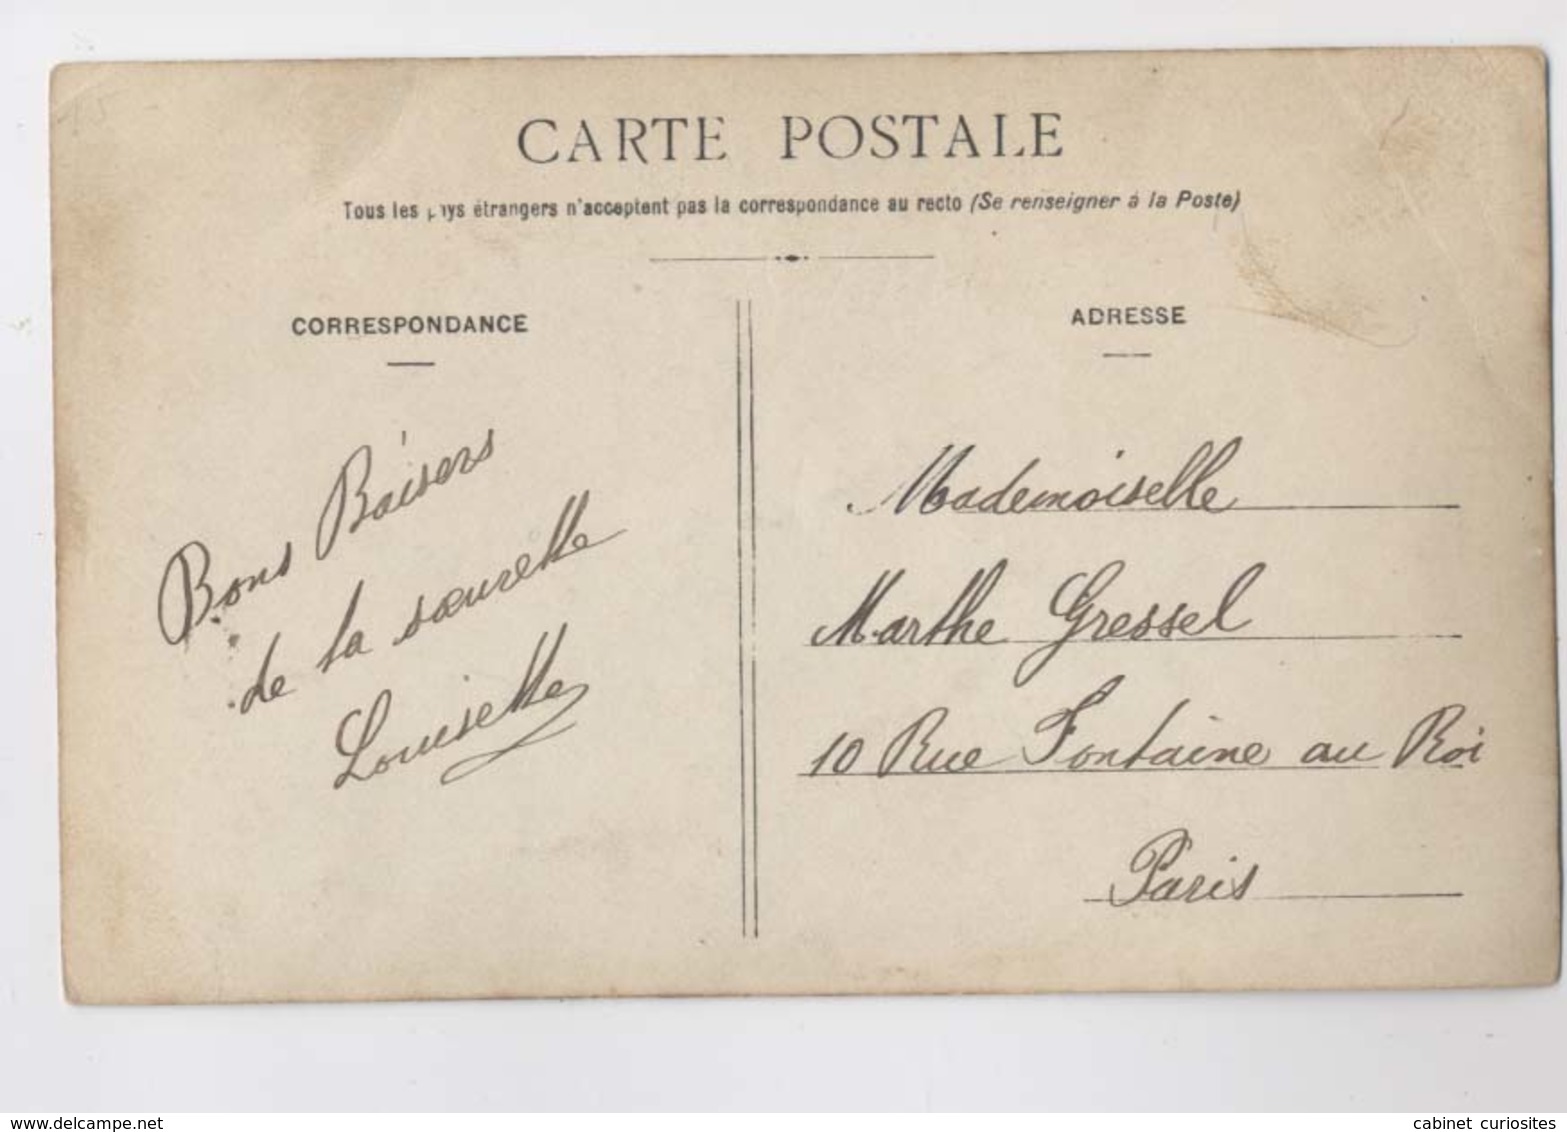 CARTE POSTALE
Tous les pays étrangers n'acceptent pas la correspondance au recto (Se renseigner à la Poste)
CORRESPONDANCE
Bons Baisers
de la sœurette
Louisette
ADRESSE
Mademoiselle
Marthe Gressel
10 Rue Fontaine au Roi
Paris
www.delcampe.net
cabinet curiosites